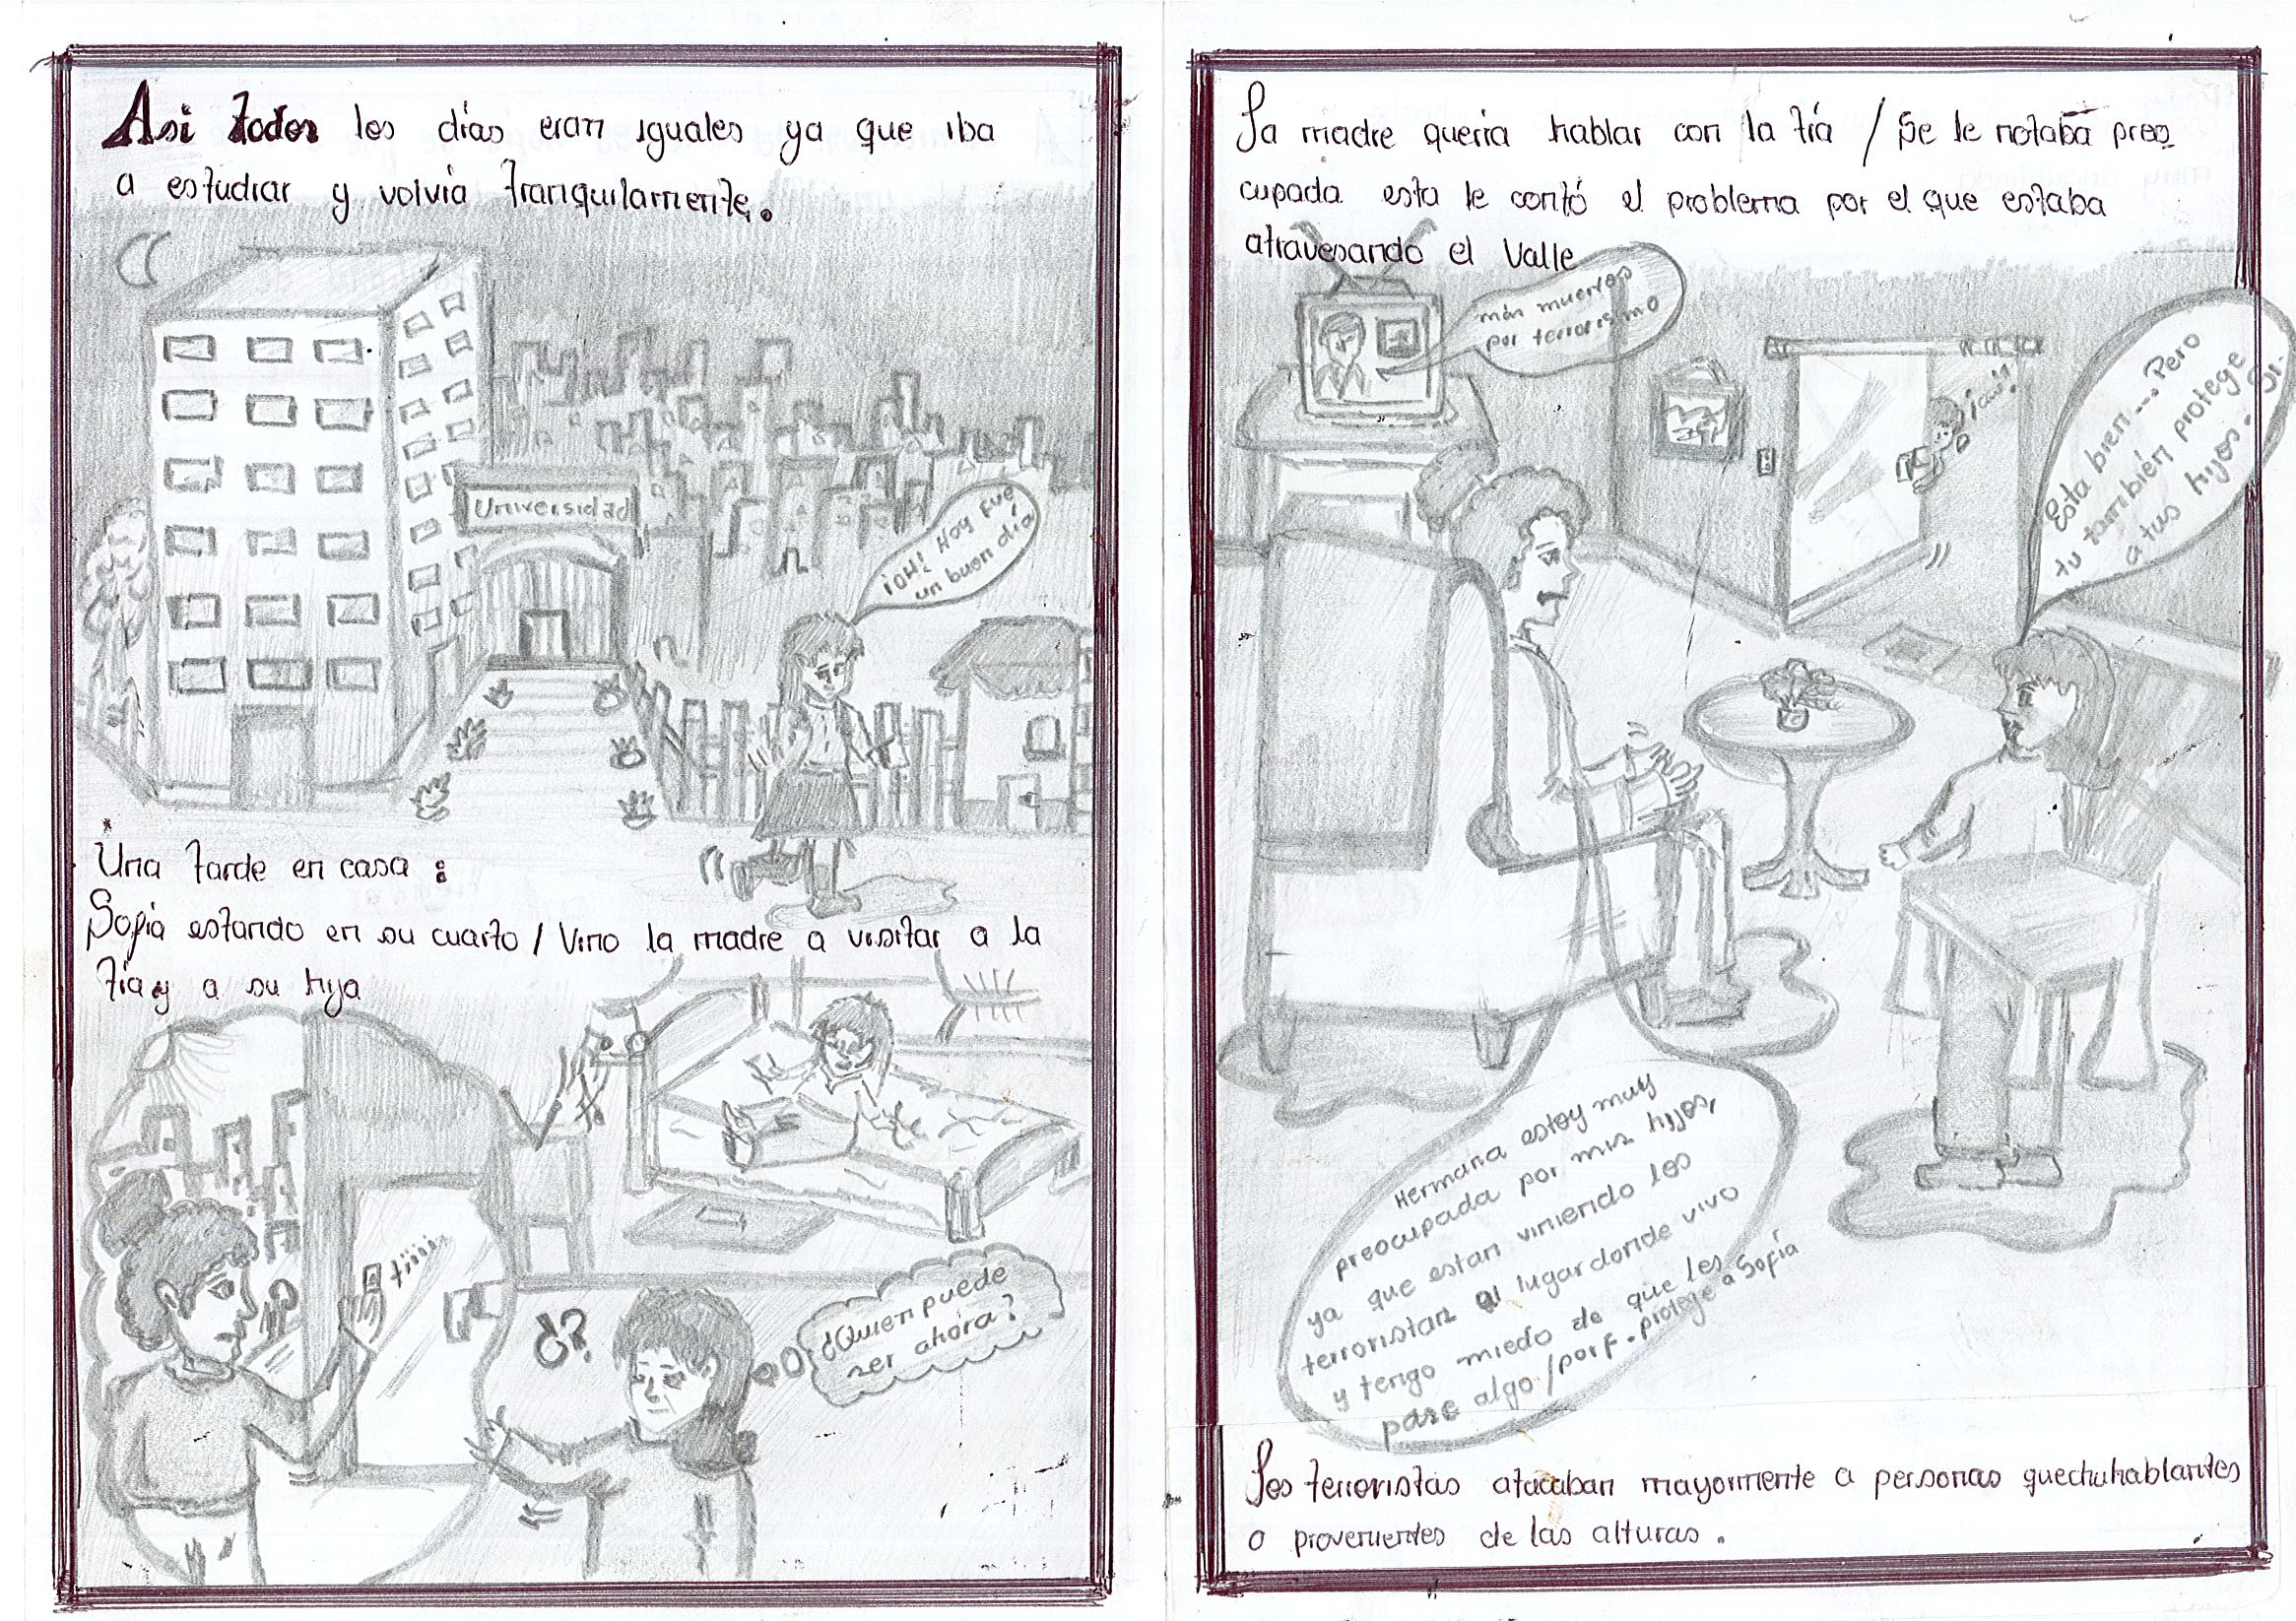 Asi todos los días eran iguales ya que iba
a estudiar y volvía tranquilamente.
Universidad
¡OH! Hoy fue
un buen día
Una tarde en casa :
Sofia estando en su cuarto / Vino la madre a visitar a la
tía y a su hija
tiiiii
¿?
¿Quien puede
ser ahora?
La madre queria hablar con la tía / Se le notaba preo
cupada esta le contó el problema por el que estaba
atravesando el Valle
más muertos
por terrorismo
Esta bien... Pero
tu también protege
a tus hijos. Si.
Hermana estoy muy
preocupada por mis hijos,
ya que estan viniendo los
terroristas al lugar donde vivo
y tengo miedo de que les
pase algo / porf. protege a Sofía
Los terroristas atacaban mayormente a personas quechuhablantes
o provenientes de las alturas.